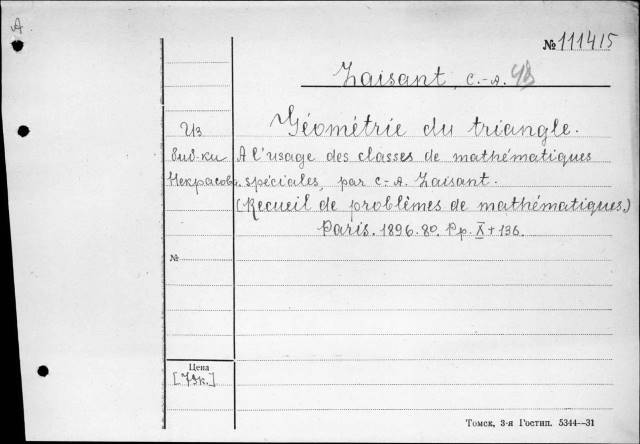 А
№ 111415
Laisant, C.-A.
Géométrie du triangle.
Из
библ-ки
Некрасова.
A l'usage des classes de mathématiques
spéciales, par C.-A. Laisant.
(Recueil de problèmes de mathématiques.)
Paris. 1896. 8o. Pp. X + 136.
№
Цена
[73к.]
Томск, 3-я Гостип. 5344—31